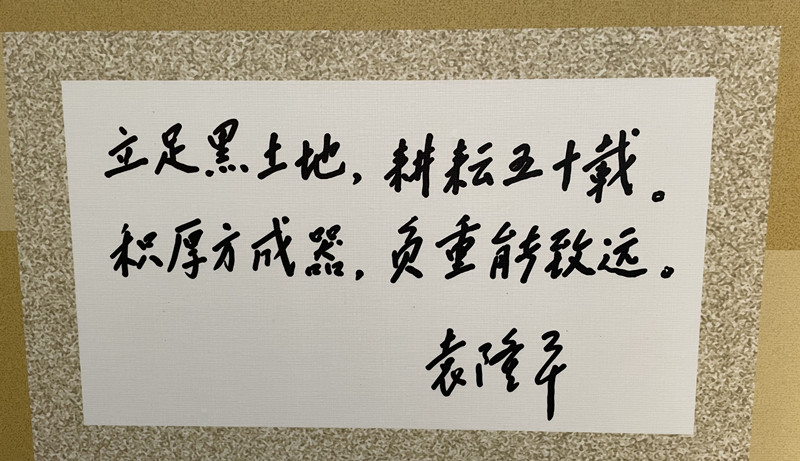 立足黑土地，耕耘五十载。
积厚方成器，负重能致远。
袁隆平